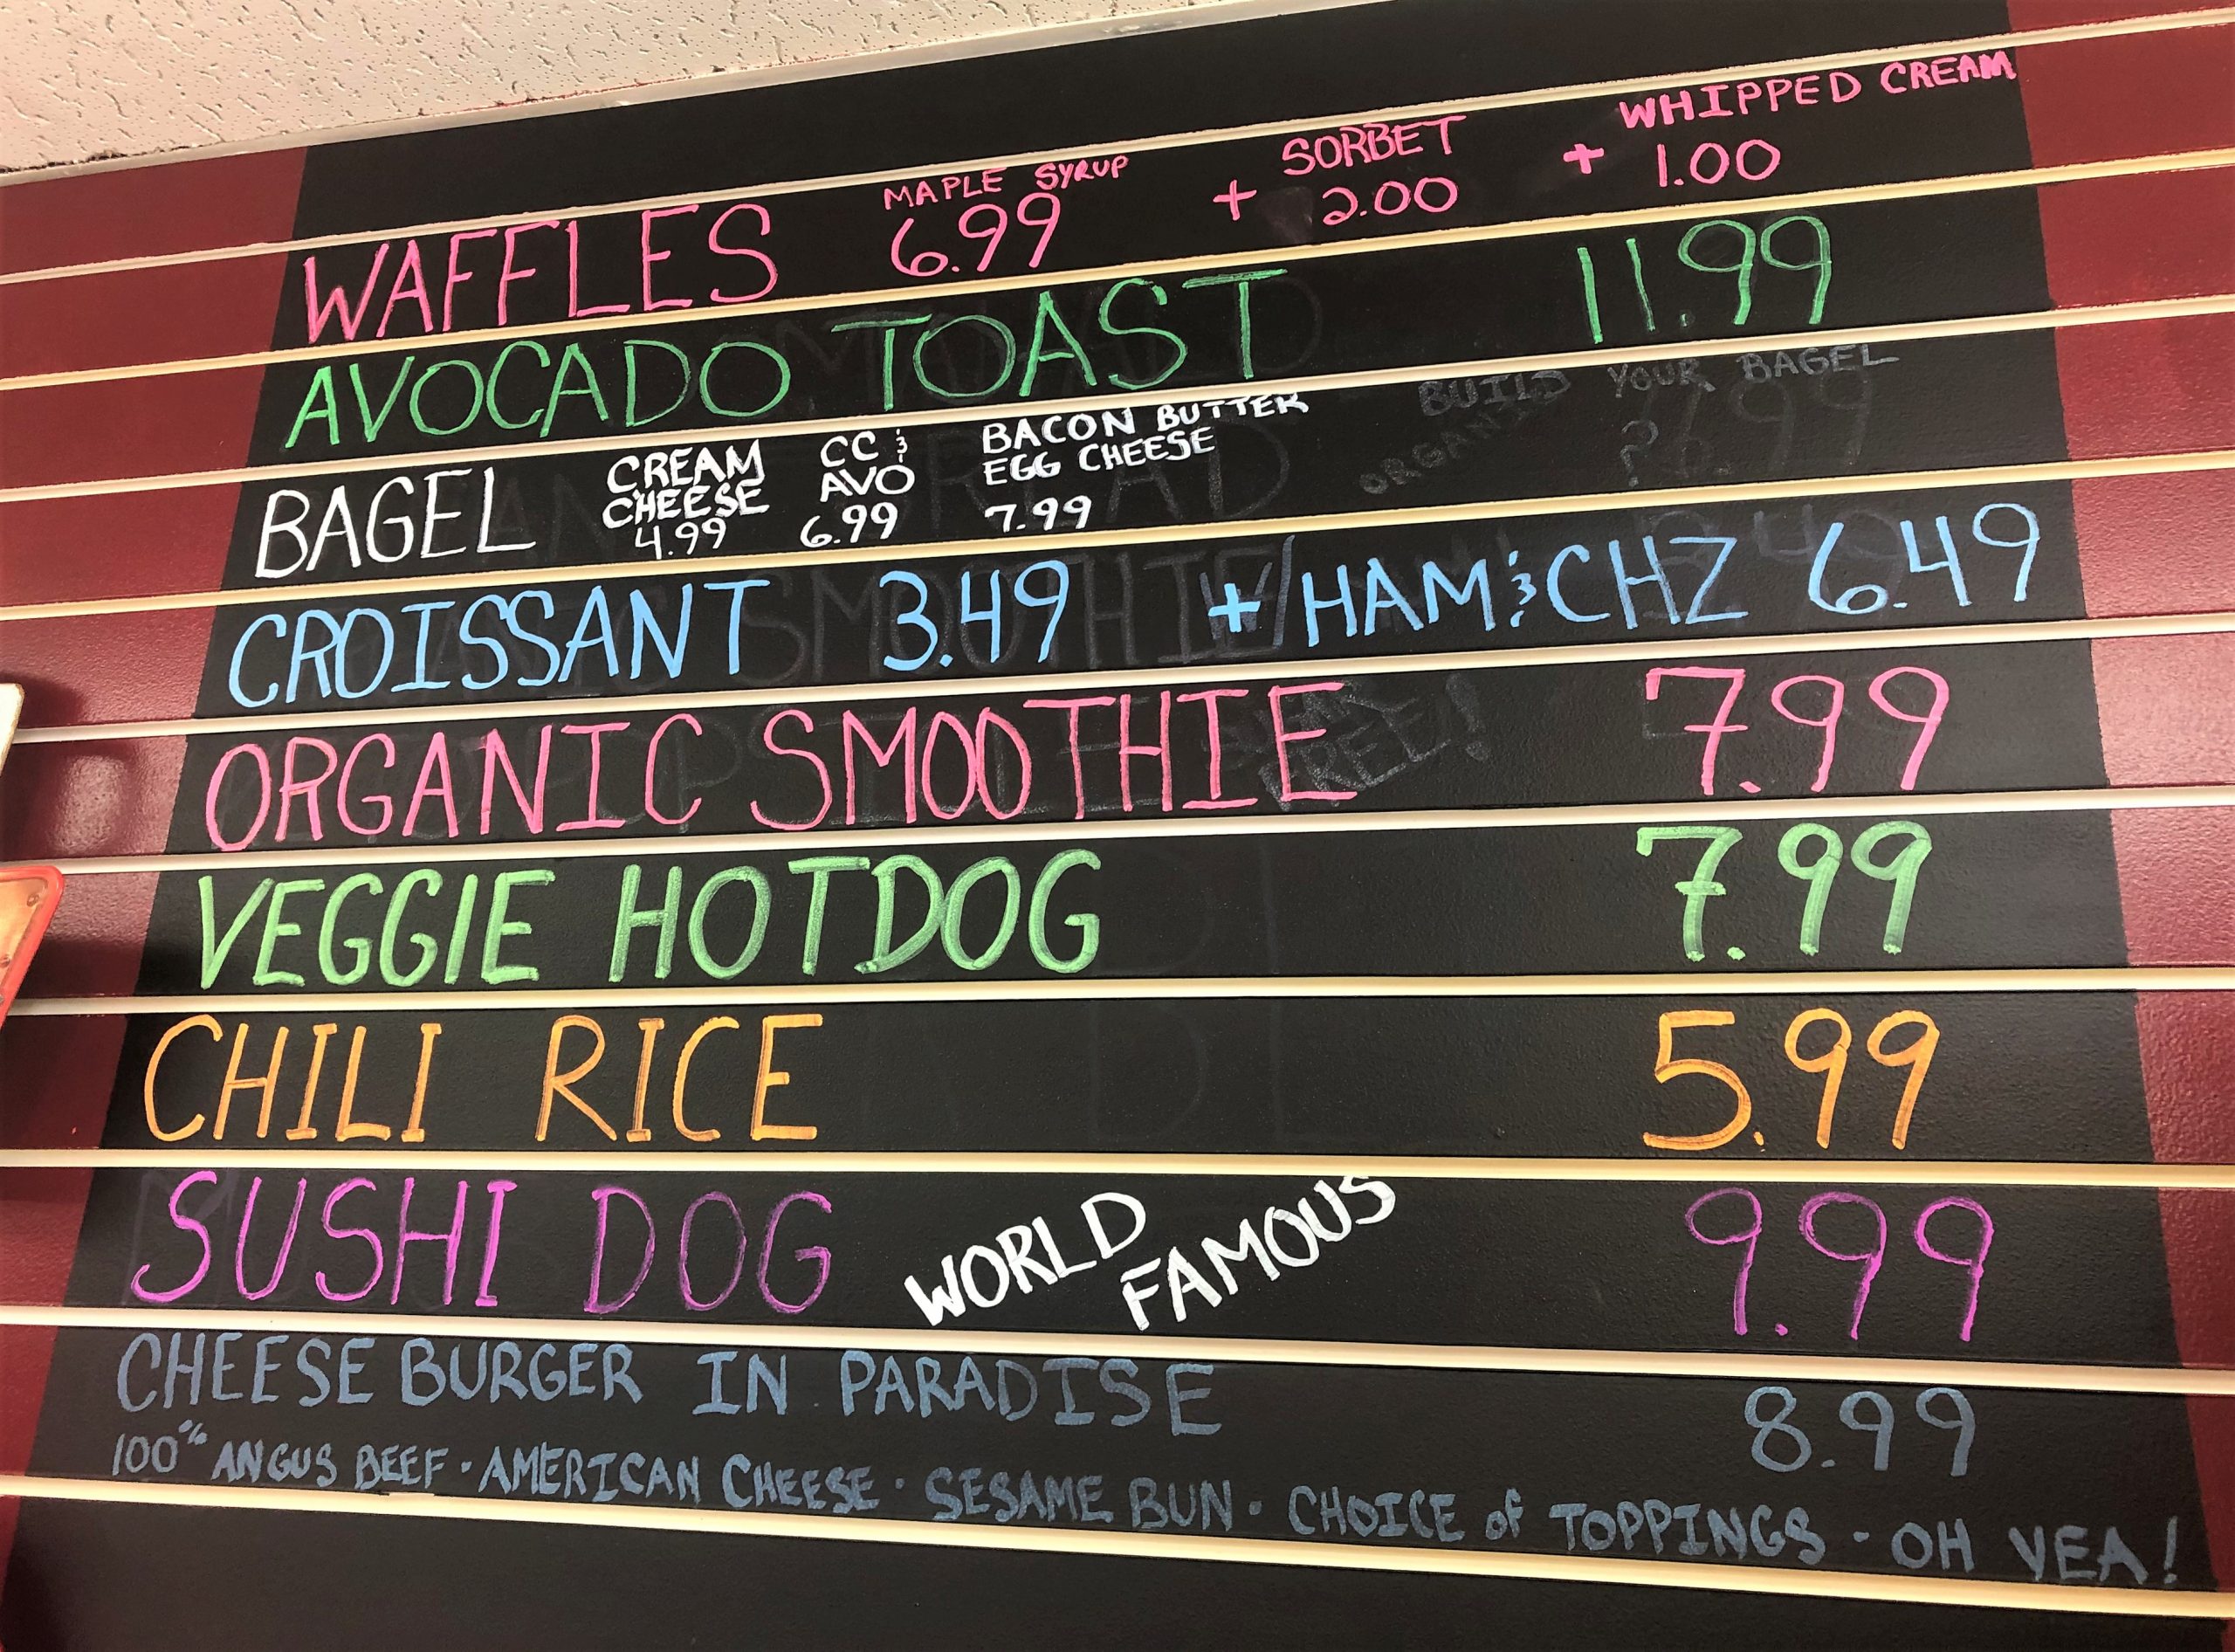 WAFFLES MAPLE SYRUP 6.99 + SORBET 2.00 + WHIPPED CREAM 1.00
AVOCADO TOAST 11.99
BAGEL CREAM CHEESE 4.99 CC & AVO 6.99 BACON BUTTER EGG CHEESE 7.99
BUILD YOUR BAGEL
ORGANIC 6.99
CROISSANT 3.49 +/HAM & CHZ 6.49
ORGANIC SMOOTHIE 7.99
FREE!
VEGGIE HOTDOG 7.99
CHILI RICE 5.99
SUSHI DOG WORLD FAMOUS 9.99
CHEESE BURGER IN PARADISE 8.99
100% ANGUS BEEF · AMERICAN CHEESE · SESAME BUN · CHOICE of TOPPINGS - OH YEA!